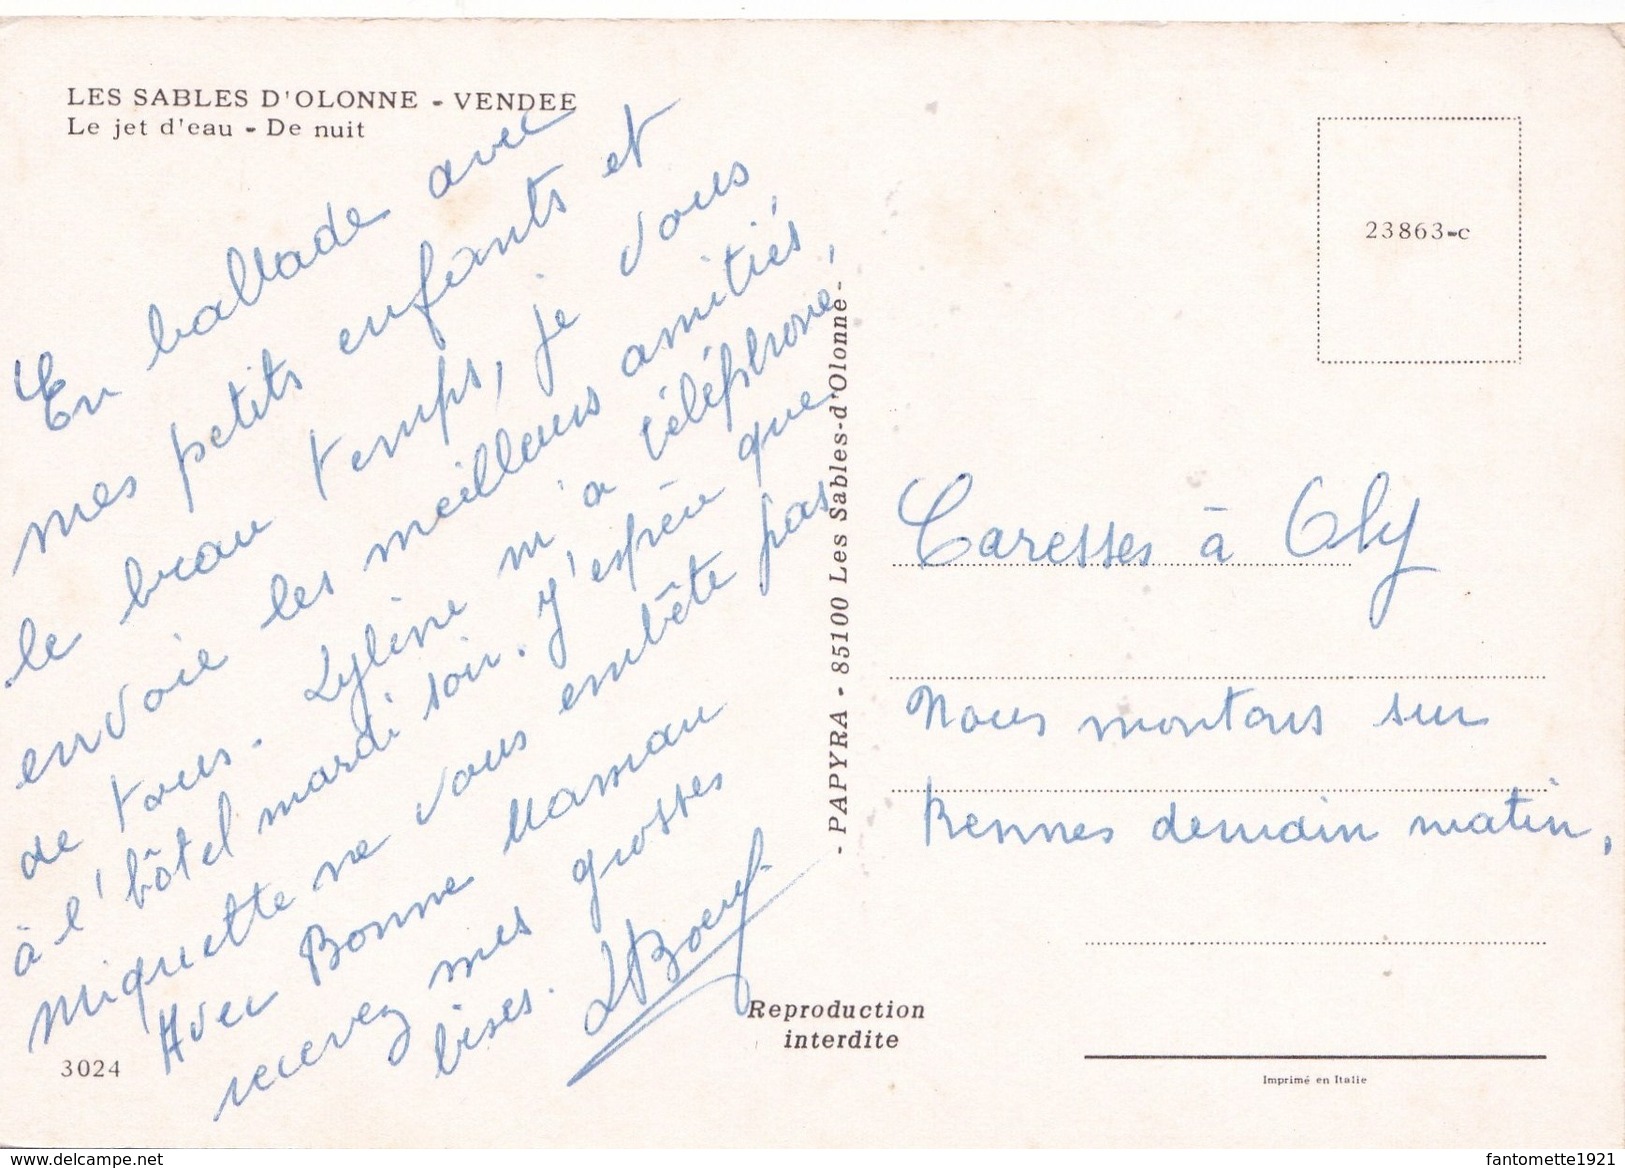 LES SABLES D'OLONNE - VENDEE
Le jet d'eau - De nuit
En ballade avec
mes petits enfants et
le beau temps, je vous
envoie les meilleurs amitiés,
de tous. Lyline m'a téléphone
à l'hôtel mardi soir. J'espère que
Miquette ne vous embête pas
Avec Bonne Maman
recevez mes grosses
bises.
3024
- PAPYRA - 85100 Les Sables-d'Olonne -
Reproduction
interdite
23863-c
Caresses à Oly
Nous montons sur
Rennes demain matin,
Imprimé en Italie
www.delcampe.net
fantomette1921